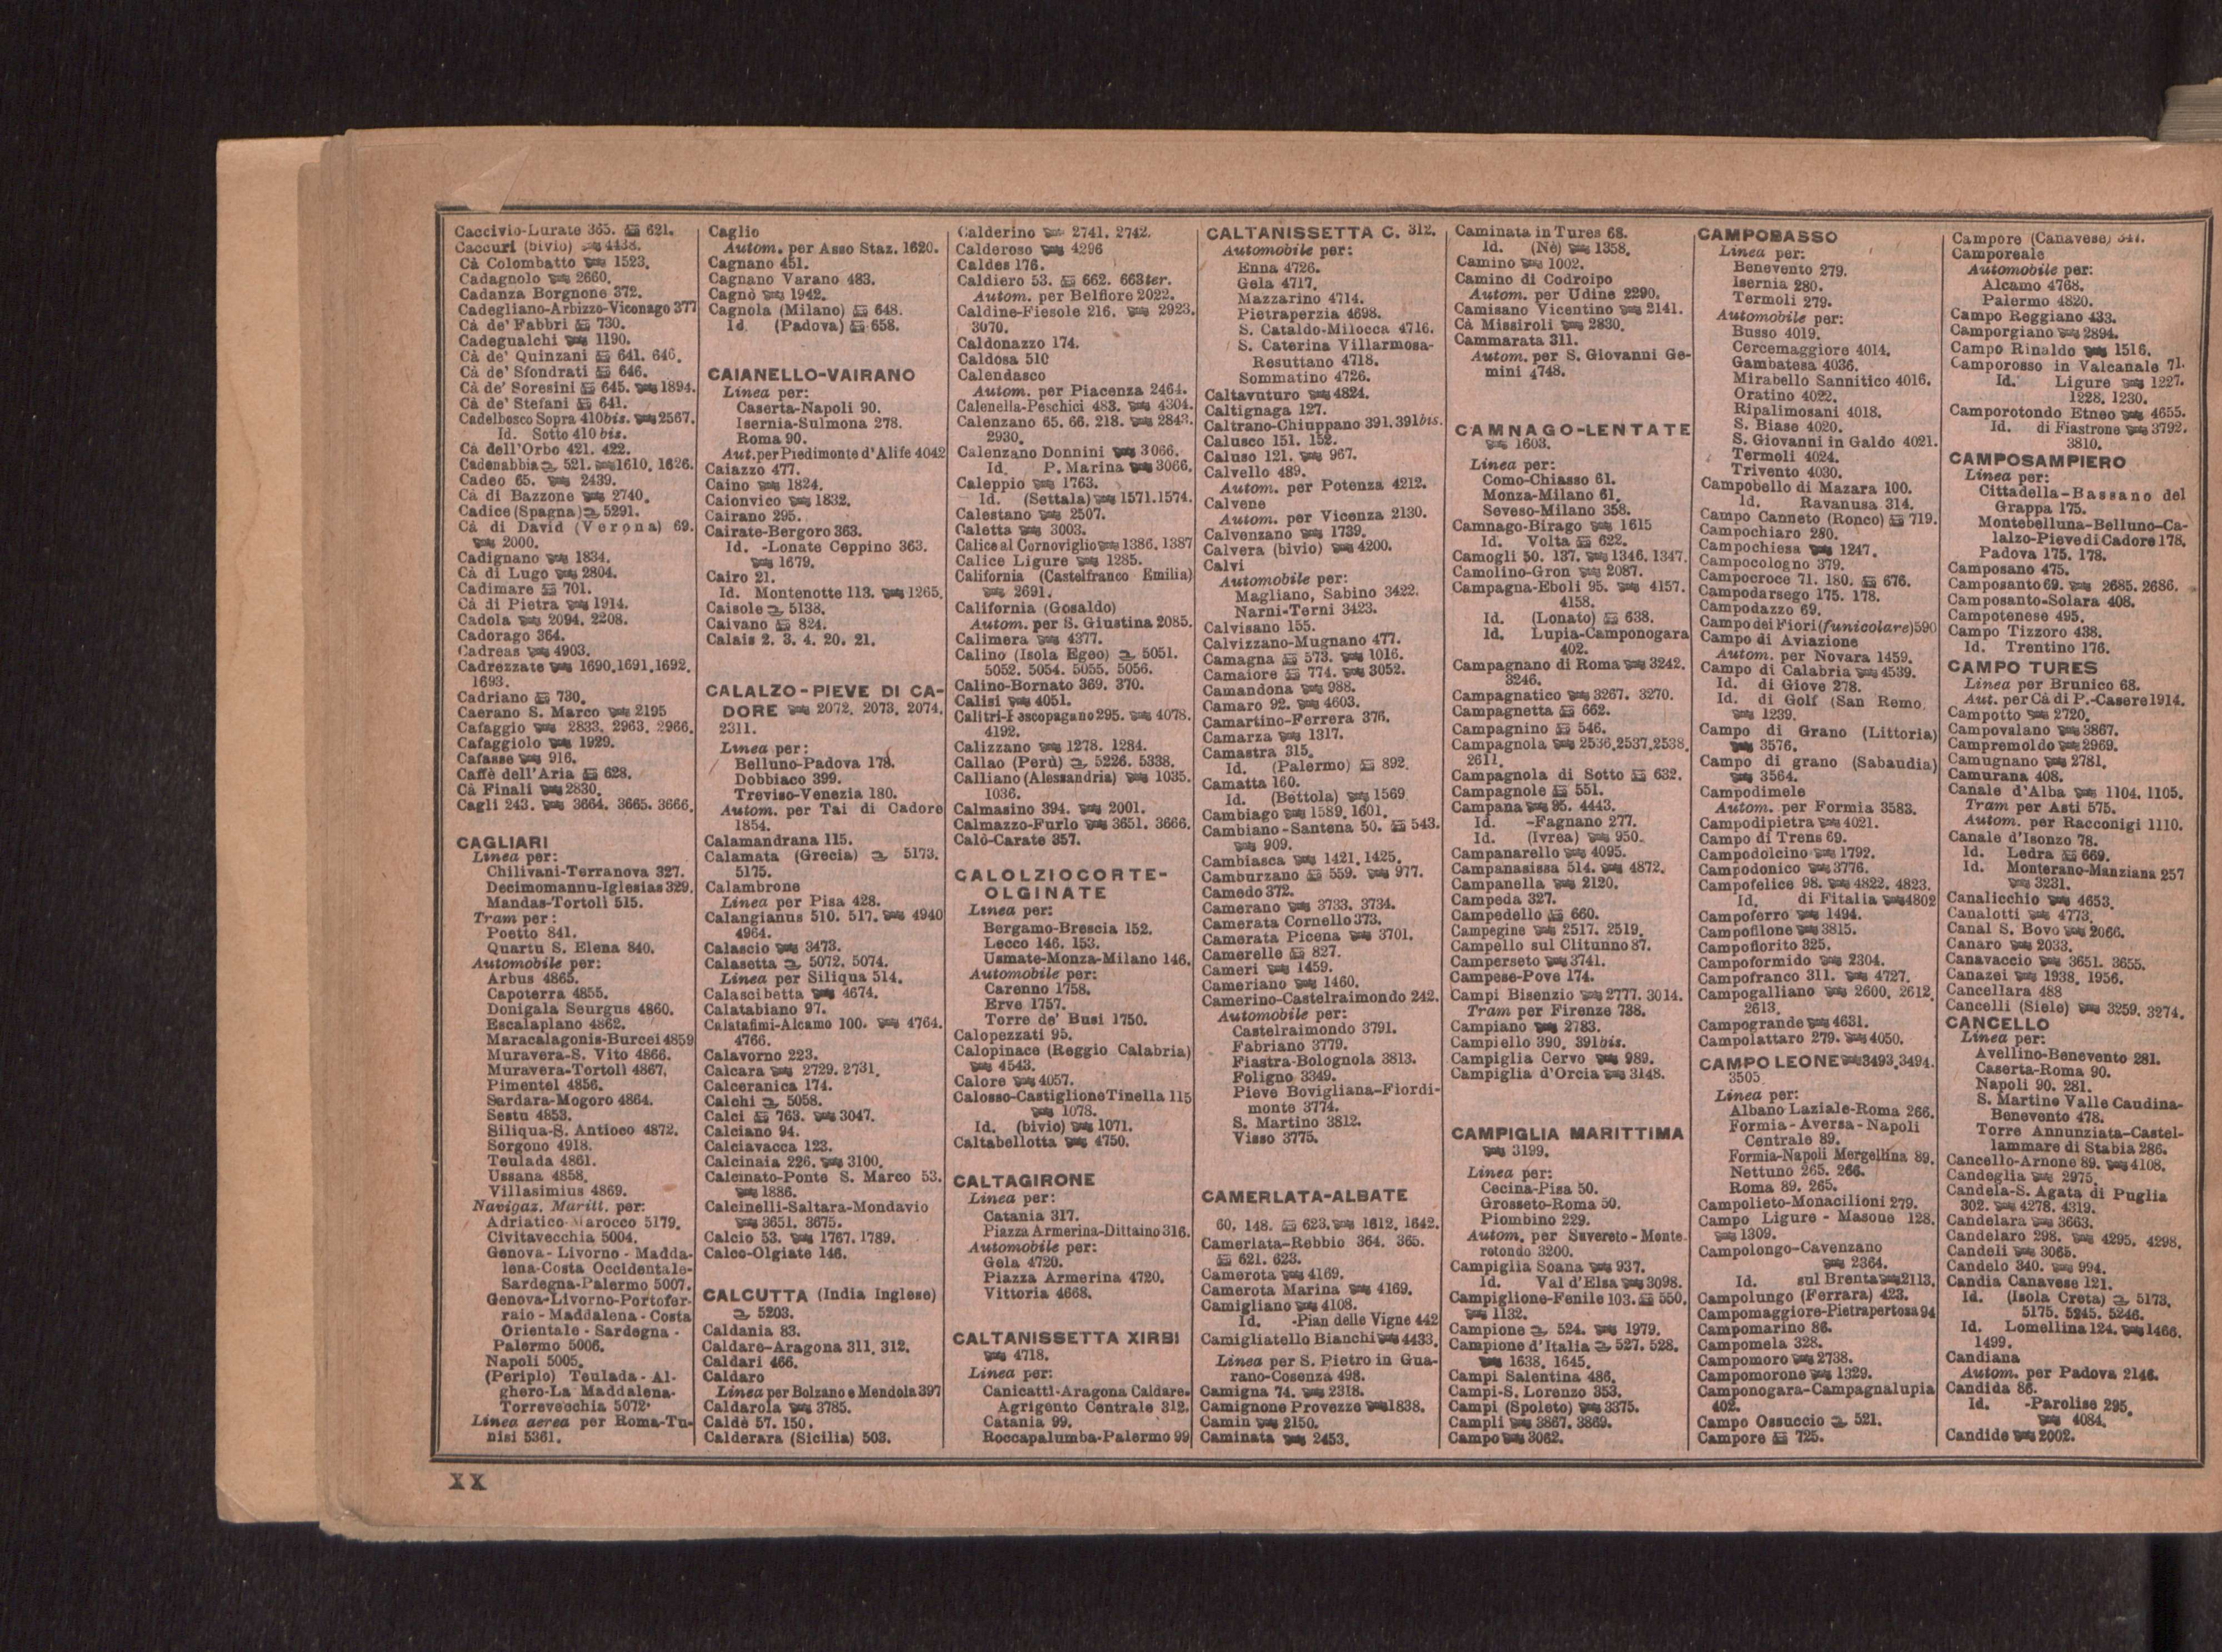 Caccivio-Lurate 365. 621.
Caccuri (bivio) 4438.
Cà Colombatto 1523.
Cadagnolo 2660.
Cadanza Borgnone 372.
Cadegliano-Arbizzo-Viconago 377
Cà de' Fabbri 730.
Cadegualchi 1190.
Cà de' Quinzani 641. 646.
Cà de' Sfondrati 646.
Cà de' Soresini 645. 1894.
Cà de' Stefani 641.
Cadelbosco Sopra 410bis. 2567.
Id. Sotto 410 bis.
Cà dell'Orbo 421. 422.
Cadenabbia 521. 1610. 1626.
Cadeo 65. 2439.
Cà di Bazzone 2740.
Cadice (Spagna) 5291.
Cà di David (Verona) 69.
2000.
Cadignano 1834.
Cà di Lugo 2804.
Cadimare 701.
Cà di Pietra 1914.
Cadola 2094. 2208.
Cadorago 364.
Cadreas 4903.
Cadrezzate 1690, 1691, 1692.
1693.
Cadriano 730.
Caerano S. Marco 2195
Cafaggio 2833. 2963. 2966.
Cafaggiolo 1929.
Cafasse 916.
Caffè dell'Aria 628.
Cà Finali 2830.
Cagli 243. 3664. 3665. 3666.
CAGLIARI
Linea per:
Chilivani-Terranova 327.
Decimomannu-Iglesias 329.
Mandas-Tortolì 515.
Tram per:
Poetto 841.
Quartu S. Elena 840.
Automobile per:
Arbus 4865.
Capoterra 4855.
Donigala Seurgus 4860.
Escalaplano 4862.
Maracalagonis-Burcei 4859
Muravera-S. Vito 4866.
Muravera-Tortolì 4867.
Pimentel 4856.
Sardara-Mogoro 4864.
Sestu 4853.
Siliqua-S. Antioco 4872.
Sorgono 4918.
Teulada 4861.
Ussana 4858.
Villasimius 4869.
Navigaz. Maritt. per:
Adriatico-Marocco 5179.
Civitavecchia 5004.
Genova - Livorno - Madda-
lena-Costa Occidentale-
Sardegna-Palermo 5007.
Genova-Livorno-Portofer-
raio - Maddalena - Costa
Orientale - Sardegna -
Palermo 5006.
Napoli 5005.
(Periplo) Teulada - Al-
ghero-La Maddalena-
Torrevecchia 5072.
Linea aerea per Roma-Tu-
nisi 5361.
Caglio
Autom. per Asso Staz. 1620.
Cagnano 451.
Cagnano Varano 483.
Cagnò 1942.
Cagnola (Milano) 648.
Id. (Padova) 658.
CAIANELLO-VAIRANO
Linea per:
Caserta-Napoli 90.
Isernia-Sulmona 278.
Roma 90.
Aut. per Piedimonte d'Alife 4042
Caiazzo 477.
Caino 1824.
Caionvico 1832.
Cairano 295.
Cairate-Bergoro 363.
Id. -Lonate Ceppino 363.
1679.
Cairo 21.
Id. Montenotte 113. 1265.
Caisole 5138.
Caivano 824.
Calais 2. 3. 4. 20. 21.
CALALZO - PIEVE DI CA-
DORE 2072. 2073. 2074.
2311.
Linea per:
Belluno-Padova 178.
Dobbiaco 399.
Treviso-Venezia 180.
Autom. per Tai di Cadore
1854.
Calamandrana 115.
Calamata (Grecia) 5173.
5175.
Calambrone
Linea per Pisa 428.
Calangianus 510. 517. 4940
4964.
Calascio 3473.
Calasetta 5072. 5074.
Linea per Siliqua 514.
Calascibetta 4674.
Calatabiano 97.
Calatafimi-Alcamo 100. 4764.
4766.
Calavorno 223.
Calcara 2729. 2731.
Calceranica 174.
Calchi 5058.
Calci 763. 3047.
Calciano 94.
Calciavacca 123.
Calcinaia 226. 3100.
Calcinato-Ponte S. Marco 53.
1886.
Calcinelli-Saltara-Mondavio
3651. 3675.
Calcio 53. 1767. 1789.
Calco-Olgiate 146.
CALCUTTA (India Inglese)
5203.
Caldania 83.
Caldare-Aragona 311, 312.
Caldari 466.
Caldaro
Linea per Bolzano e Mendola 397
Caldarola 3785.
Caldè 57. 150.
Calderara (Sicilia) 503.
Calderino 2741. 2742.
Calderoso 4296
Caldes 176.
Caldiero 53. 662. 663ter.
Autom. per Belfiore 2022.
Caldine-Fiesole 216. 2923.
3070.
Caldonazzo 174.
Caldosa 510
Calendasco
Autom. per Piacenza 2464.
Calenella-Peschici 483. 4304.
Calenzano 65. 66. 218. 2843.
2930.
Calenzano Donnini 3066.
Id. P. Marina 3066.
Caleppio 1763.
Id. (Settala) 1571. 1574.
Calestano 2507.
Caletta 3003.
Calice al Cornoviglio 1386. 1387
Calice Ligure 1285.
California (Castelfranco Emilia)
2691.
California (Gosaldo)
Autom. per S. Giustina 2085.
Calimera 4377.
Calino (Isola Egeo) 5051.
5052. 5054. 5055. 5056.
Calino-Bornato 369. 370.
Calisi 4051.
Calitri-Pescopagano 295. 4078.
4192.
Calizzano 1278. 1284.
Callao (Perù) 5226. 5338.
Calliano (Alessandria) 1035.
1036.
Calmasino 394. 2001.
Calmazzo-Furlo 3651. 3666.
Calò-Carate 357.
CALOLZIOCORTE-
OLGINATE
Linea per:
Bergamo-Brescia 152.
Lecco 146. 153.
Usmate-Monza-Milano 146.
Automobile per:
Carenno 1758.
Erve 1757.
Torre de' Busi 1750.
Calopezzati 95.
Calopinace (Reggio Calabria)
4543.
Calore 4057.
Calosso-Castiglione Tinella 115
1078.
Id. (bivio) 1071.
Caltabellotta 4750.
CALTAGIRONE
Linea per:
Catania 317.
Piazza Armerina-Dittaino 316.
Automobile per:
Gela 4720.
Piazza Armerina 4720.
Vittoria 4668.
CALTANISSETTA XIRBI
4718.
Linea per:
Canicattì-Aragona Caldare-
Agrigento Centrale 312.
Catania 99.
Roccapalumba-Palermo 99
CALTANISSETTA C. 312.
Automobile per:
Enna 4726.
Gela 4717.
Mazzarino 4714.
Pietraperzia 4698.
S. Cataldo-Milocca 4716.
S. Caterina Villarmosa-
Resuttano 4718.
Sommatino 4726.
Caltavuturo 4824.
Caltignaga 127.
Caltrano-Chiuppano 391. 391bis.
Calusco 151. 152.
Caluso 121. 967.
Calvello 489.
Autom. per Potenza 4212.
Calvene
Autom. per Vicenza 2130.
Calvenzano 1739.
Calvera (bivio) 4200.
Calvi
Automobile per:
Magliano, Sabino 3422.
Narni-Terni 3423.
Calvisano 155.
Calvizzano-Mugnano 477.
Camagna 573. 1016.
Camaiore 774. 3052.
Camandona 988.
Camaro 92. 4603.
Camartino-Ferrera 376.
Camarza 1317.
Camastra 315.
Id. (Palermo) 892.
Camatta 160.
Id. (Bettola) 1569.
Cambiago 1589. 1601.
Cambiano-Santena 50. 543.
909.
Cambiasca 1421. 1425.
Camburzano 559. 977.
Camedo 372.
Camerano 3733. 3734.
Camerata Cornello 373.
Camerata Picena 3701.
Camerelle 827.
Cameri 1459.
Cameriano 1460.
Camerino-Castelraimondo 242.
Automobile per:
Castelraimondo 3791.
Fabriano 3779.
Fiastra-Bolognola 3813.
Foligno 3349.
Pieve Bovigliana-Fiordi-
monte 3774.
S. Martino 3812.
Visso 3775.
CAMERLATA-ALBATE
60. 148. 623. 1612. 1642.
Camerlata-Rebbio 364. 365.
621. 623.
Camerota 4169.
Camerota Marina 4169.
Camigliano 4108.
Id. -Pian delle Vigne 442
Camigliatello Bianchi 4433.
Linea per S. Pietro in Gua-
rano-Cosenza 498.
Camigna 74. 2318.
Camignone Provezze 1838.
Camin 2150.
Caminata 2453.
Caminata in Tures 68.
Id. (Nè) 1358.
Camino 1002.
Camino di Codroipo
Autom. per Udine 2290.
Camisano Vicentino 2141.
Cà Missiroli 2830.
Cammarata 311.
Autom. per S. Giovanni Ge-
mini 4748.
CAMNAGO-LENTATE
1603.
Linea per:
Como-Chiasso 61.
Monza-Milano 61.
Seveso-Milano 358.
Camnago-Birago 1615
Id. Volta 622.
Camogli 50. 137. 1346. 1347.
Camolino-Gron 2087.
Campagna-Eboli 95. 4157.
4158.
Id. (Lonato) 638.
Id. Lupia-Camponogara
402.
Campagnano di Roma 3242.
3246.
Campagnatico 3267. 3270.
Campagnetta 662.
Campagnino 546.
Campagnola 2536, 2537, 2538.
2611.
Campagnola di Sotto 632.
Campagnole 551.
Campana 95. 4443.
Id. -Fagnano 277.
Id. (Ivrea) 950.
Campanarello 4095.
Campanasissa 514. 4872.
Campanella 2120.
Campeda 327.
Campedello 660.
Campegine 2517. 2519.
Campello sul Clitunno 87.
Camperseto 3741.
Campese-Pove 174.
Campi Bisenzio 2777. 3014.
Tram per Firenze 738.
Campiano 2783.
Campiello 390. 391bis.
Campiglia Cervo 989.
Campiglia d'Orcia 3148.
CAMPIGLIA MARITTIMA
3199.
Linea per:
Cecina-Pisa 50.
Grosseto-Roma 50.
Piombino 229.
Autom. per Suvereto - Monte-
rotondo 3200.
Campiglia Soana 937.
Id. Val d'Elsa 3098.
Campiglione-Fenile 103. 550.
1132.
Campione 524. 1979.
Campione d'Italia 527. 528.
1638. 1645.
Campi Salentina 486.
Campi-S. Lorenzo 353.
Campi (Spoleto) 3375.
Campli 3867. 3869.
Campo 3062.
CAMPOBASSO
Linea per:
Benevento 279.
Isernia 280.
Termoli 279.
Automobile per:
Busso 4019.
Cercemaggiore 4014.
Gambatesa 4036.
Mirabello Sannitico 4016.
Oratino 4022.
Ripalimosani 4018.
S. Biase 4020.
S. Giovanni in Galdo 4021.
Termoli 4024.
Trivento 4030.
Campobello di Mazara 100.
Id. Ravanusa 314.
Campo Canneto (Ronco) 719.
Campochiaro 280.
Campochiesa 1247.
Campocologno 379.
Campocroce 71. 180. 676.
Campodarsego 175. 178.
Campodazzo 69.
Campo dei Fiori (funicolare) 590
Campo di Aviazione
Autom. per Novara 1459.
Campo di Calabria 4539.
Id. di Giove 278.
Id. di Golf (San Remo.
1239.
Campo di Grano (Littoria)
3576.
Campo di grano (Sabaudia)
3564.
Campodimele
Autom. per Formia 3583.
Campodipietra 4021.
Campo di Trens 69.
Campodolcino 1792.
Campodonico 3776.
Campofelice 98. 4822. 4823.
Id. di Fitalia 4802
Campoferro 1494.
Campofilone 3815.
Campofiorito 325.
Campoformido 2304.
Campofranco 311. 4727.
Campogalliano 2600. 2612.
2613.
Campogrande 4631.
Campolattaro 279. 4050.
CAMPO LEONE 3493, 3494.
3505.
Linea per:
Albano Laziale-Roma 266.
Formia - Aversa - Napoli
Centrale 89.
Formia-Napoli Mergellina 89.
Nettuno 265. 266.
Roma 89. 265.
Campolieto-Monacilioni 279.
Campo Ligure - Masone 128.
1309.
Campolongo-Cavenzano
2364.
Id. sul Brenta 2113.
Campolungo (Ferrara) 423.
Campomaggiore-Pietrapertosa 94
Campomarino 86.
Campomela 328.
Campomoro 2738.
Campomorone 1329.
Camponogara-Campagnalupia
402.
Campo Ossuccio 521.
Campore 725.
Campore (Canavese) 341.
Camporeale
Automobile per:
Alcamo 4768.
Palermo 4820.
Campo Reggiano 433.
Camporgiano 2894.
Campo Rinaldo 1516.
Camporosso in Valcanale 71.
Id. Ligure 1227.
1228. 1230.
Camporotondo Etneo 4655.
Id. di Fiastrone 3792.
3810.
CAMPOSAMPIERO
Linea per:
Cittadella-Bassano del
Grappa 175.
Montebelluna-Belluno-Ca-
lalzo-Pieve di Cadore 178.
Padova 175. 178.
Camposano 475.
Camposanto 69. 2685. 2686.
Camposanto-Solara 408.
Campotenese 495.
Campo Tizzoro 438.
Id. Trentino 176.
CAMPO TURES
Linea per Brunico 68.
Aut. per Cà di P.-Casere 1914.
Campotto 2720.
Campovalano 3867.
Campremoldo 2969.
Camugnano 2781.
Camurana 408.
Canale d'Alba 1104. 1105.
Tram per Asti 575.
Autom. per Racconigi 1110.
Canale d'Isonzo 78.
Id. Ledra 669.
Id. Monterano-Manziana 257
3231.
Canalicchio 4653.
Canalotti 4773
Canal S. Bovo 2066.
Canaro 2033.
Canavaccio 3651. 3655.
Canazei 1938. 1956.
Cancellara 488
Cancelli (Siele) 3259. 3274.
CANCELLO
Linea per:
Avellino-Benevento 281.
Caserta-Roma 90.
Napoli 90. 281.
S. Martino Valle Caudina-
Benevento 478.
Torre Annunziata-Castel-
lammare di Stabia 286.
Cancello-Arnone 89. 4108.
Candeglia 2975.
Candela-S. Agata di Puglia
302. 4278. 4319.
Candelara 3663.
Candelaro 298. 4295. 4298.
Candeli 3065.
Candelo 340. 994.
Candia Canavese 121.
Id. (Isola Creta) 5173.
5175. 5245. 5246.
Id. Lomellina 124. 1466.
1499.
Candiana
Autom. per Padova 2146.
Candida 86.
Id. -Parolise 295.
4084.
Candide 2002.
XX